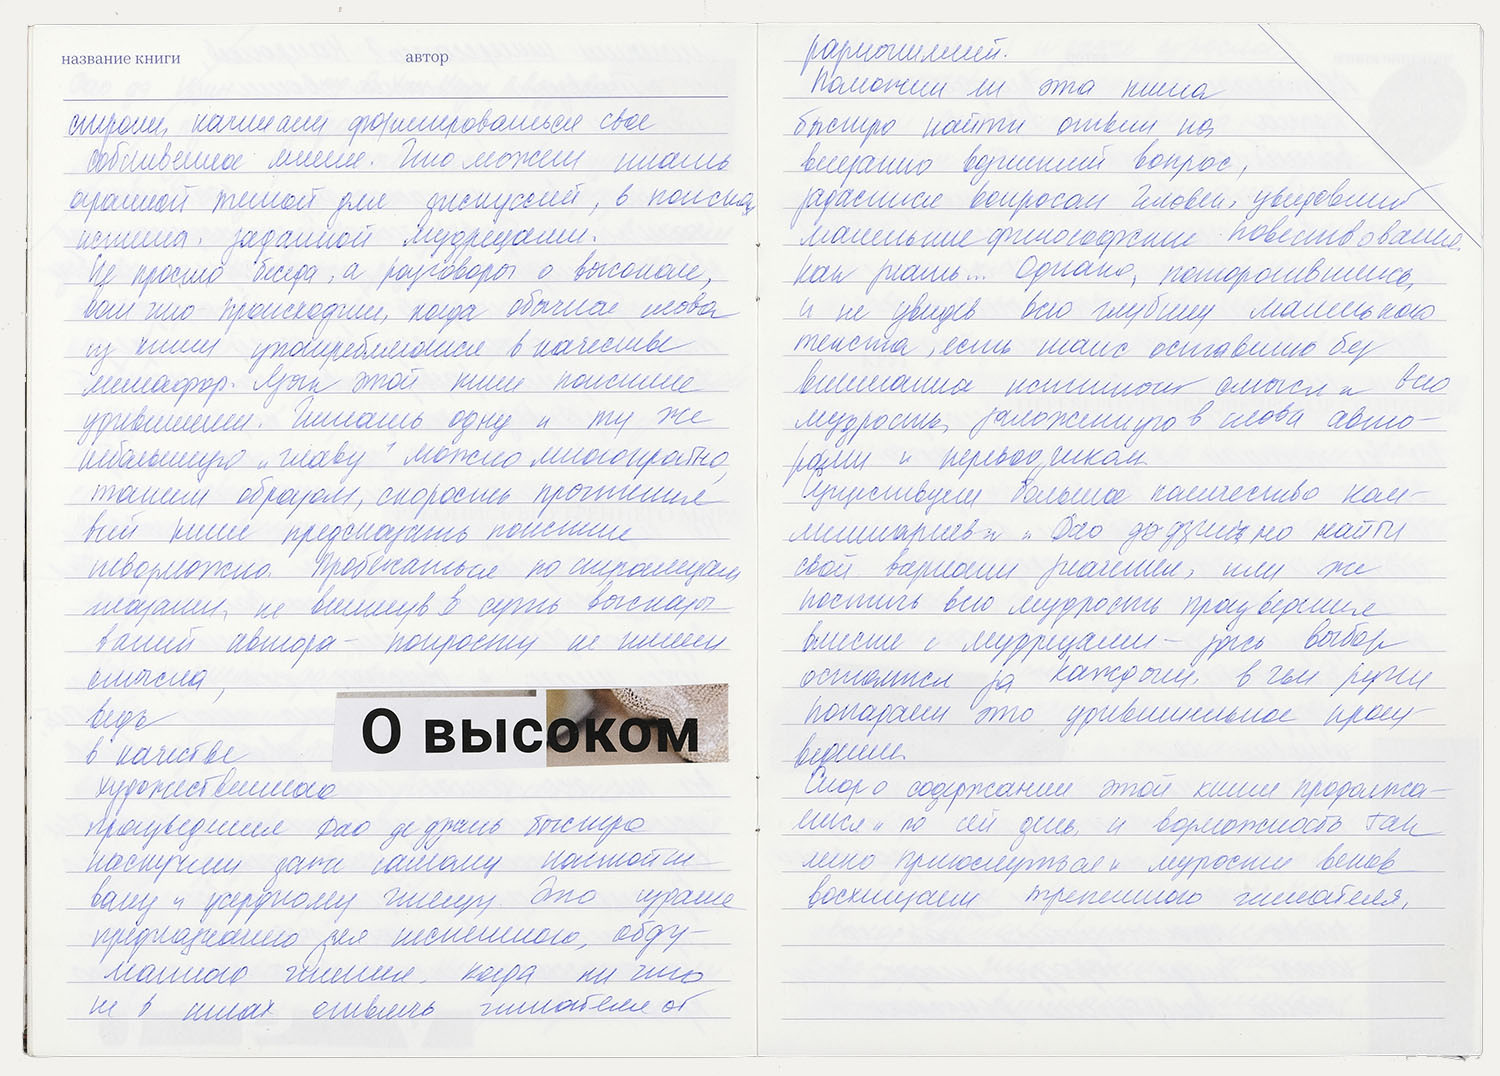 название книги автор
строки, начинает формироваться свое
собственное мнение. Что может стать
огромной темой для дискуссий, в поисках
истины, заданной мудрецами.
Не просто беседа, а разговоры о высоком,
вот что происходит, когда обычные слова
из книги употребляются в качестве
метафор. Язык этой книги поистине
удивителен. Читать одну и ту же
небольшую „главу“ можно многократно,
таким образом, скорость прочтения
всей книги предсказать поистине
невозможно. Пробежаться по страницам
глазами, не вникнув в суть высказы-
ваний автора – попросту не имеет
смысла,
ведь
О высоком
в качестве
художественного
произведения Дао де дзинь быстро
наскучит даже самому
и усердному чтецу. Это издание
предназначено для неспешного, обду-
манного чтения, когда ни что
не в силах отвлечь читателя от
размышлений.
Поможет ли эта книга
быстро найти ответ на
внезапно возникший вопрос,
задастся вопросом человек, увидевший
маленькие философские повествования.
Как знать... Однако, поторопившись,
и не увидев всю глубину маленького
текста, есть шанс оставить без
внимания истинный смысл и всю
мудрость, заложенную в слова авто-
рами и переводчиком.
Существует большое количество ком-
ментариев к „Дао де дзин но найти
свой вариант значения, или же
постичь всю мудрость произведения
вместе с мудрецами – здесь выбор
остается за каждым, в чьи руки
попадает это удивительное произ-
ведение.
Спор о содержании этой книги продолжа-
ется и по сей день, и возможность так
легко прикоснуться к мудрости веков
восхищает трепетного читателя.